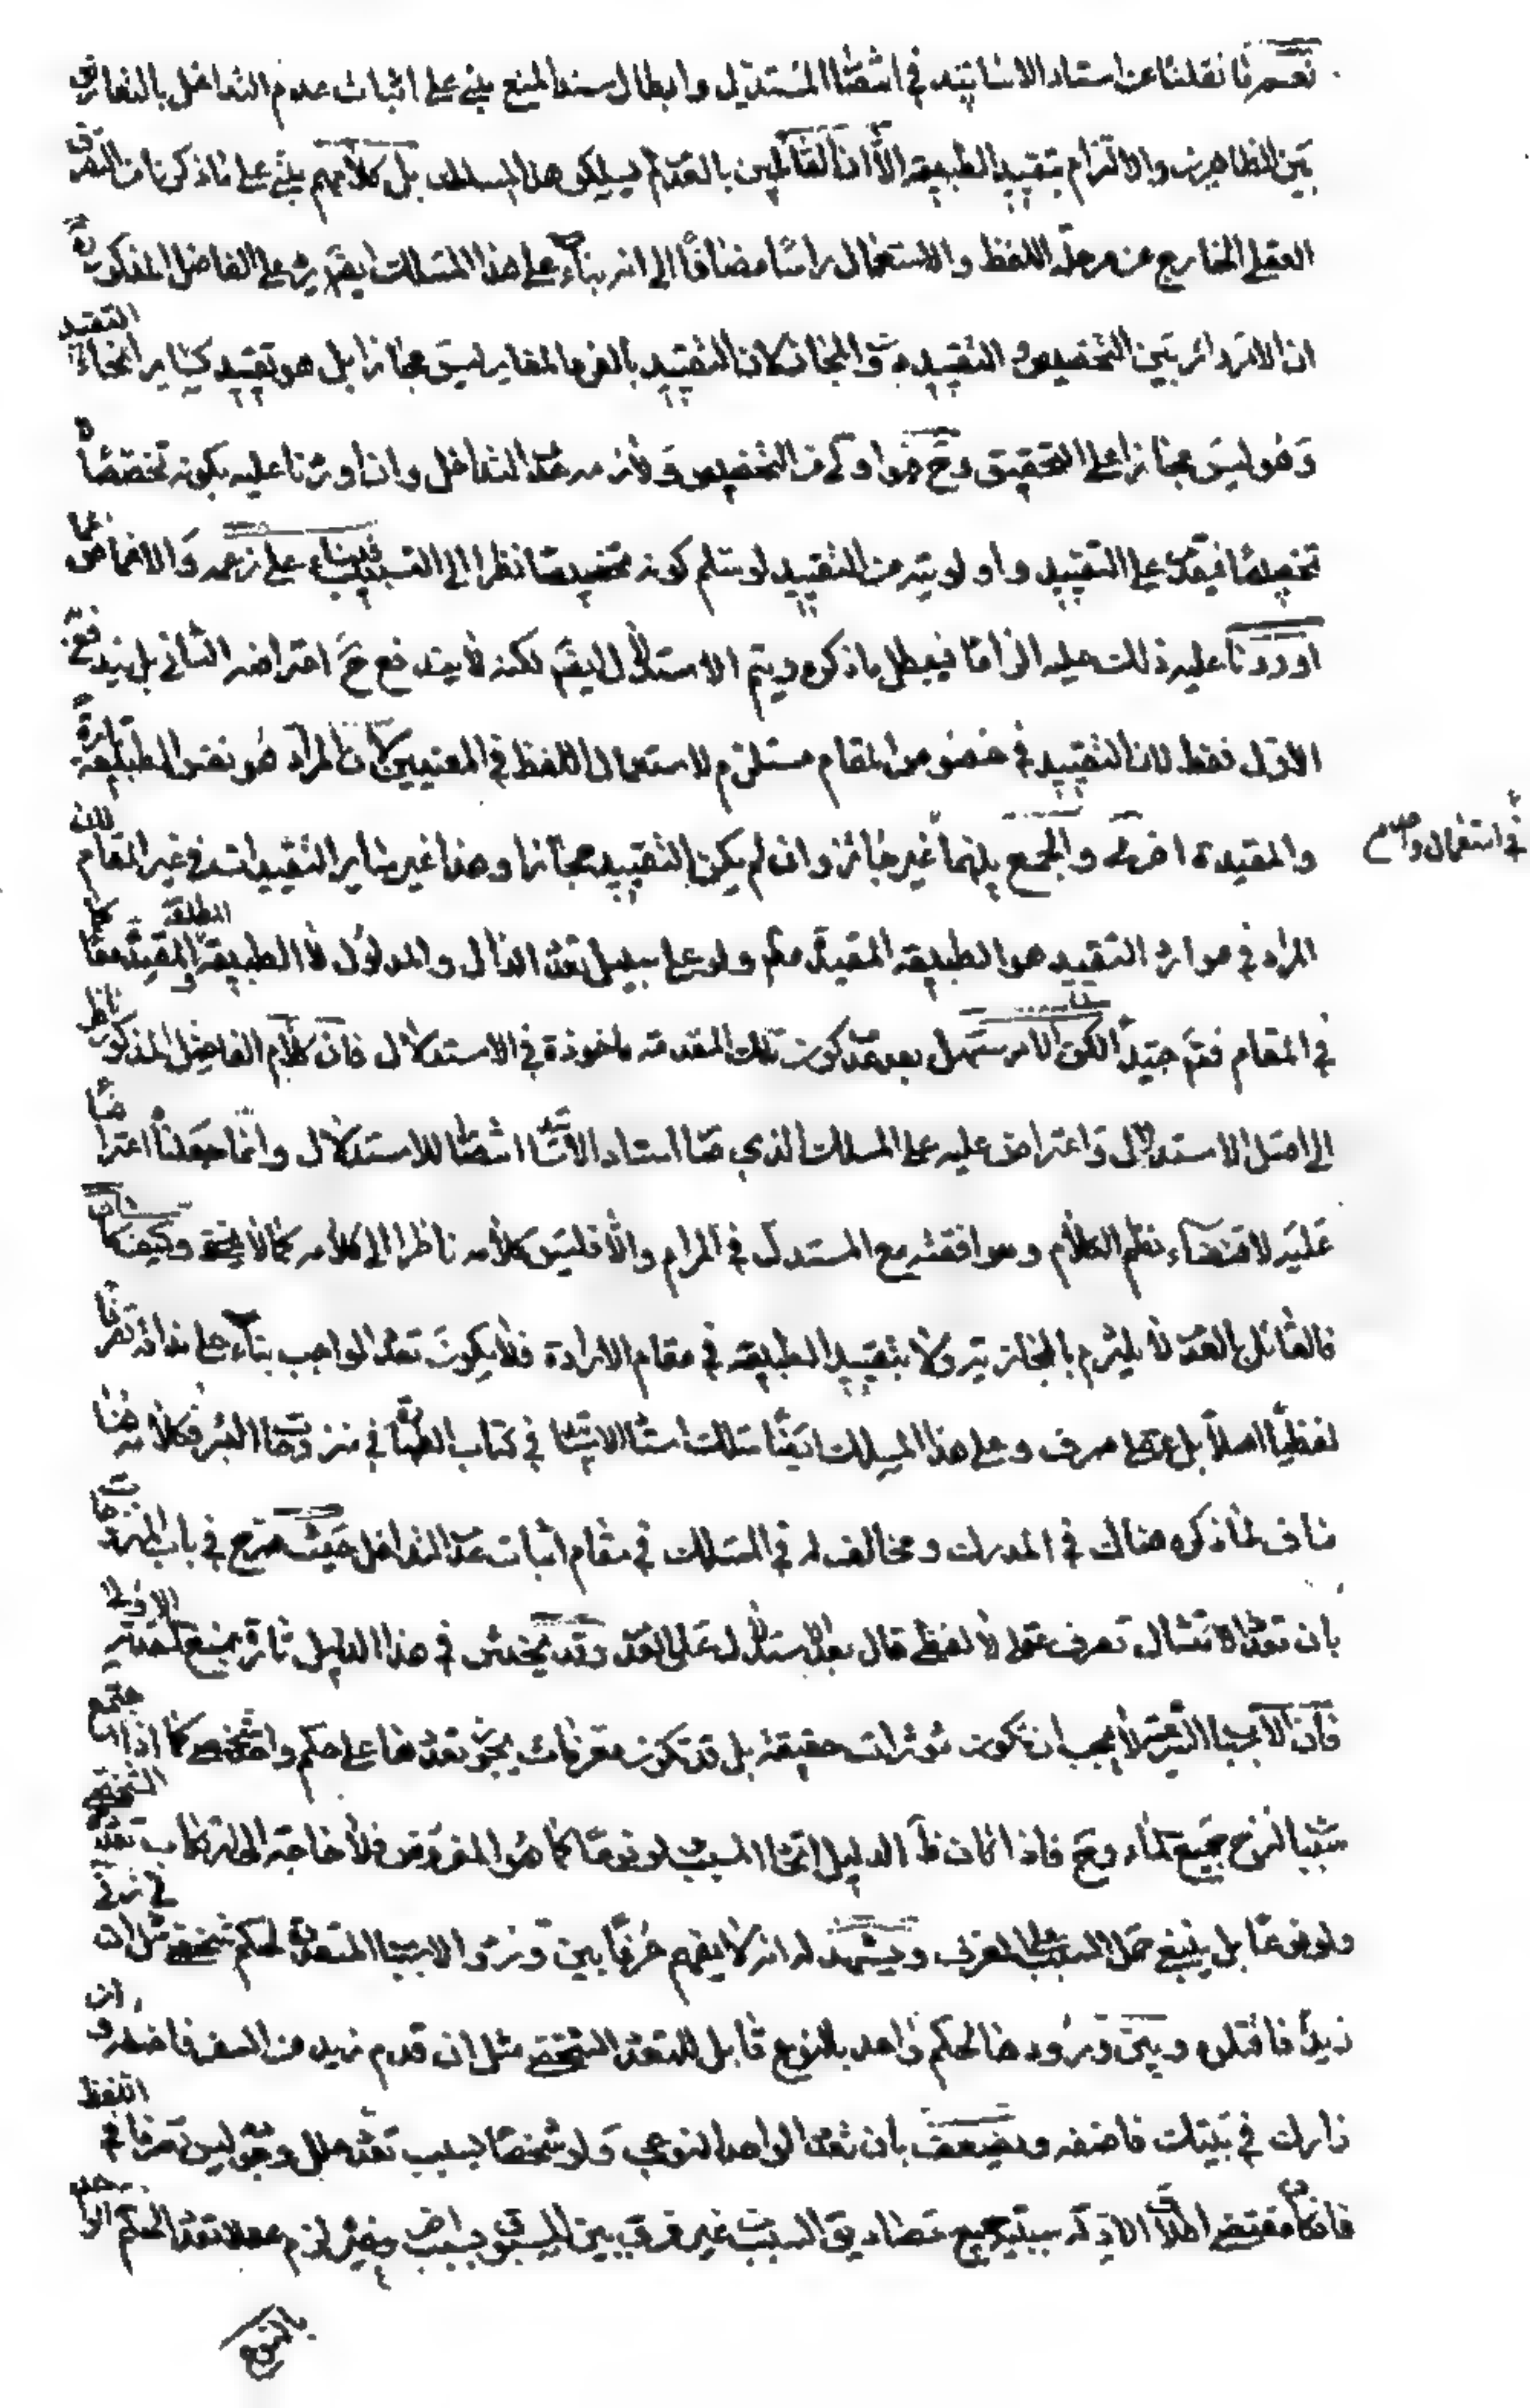 نعم ما نقلنا عن استاد الاساتيد في انتصار المستدل وابطال سند المنع يبنى على اثبات عدم التداخل بالتعارض
بين الظاهرين والالتزام بتقييد الطبيعة الا ان القائلين بالعدم لم يسلكو هذا المسلك بل كلامهم يبنى على ما ذكرنا من التصرف
العقلى الخارج عن مرحلة اللفظ والاستعمال راسا مضافا الى انه بناء على هذا المسلك ايضا يرد على الفاضل المذكور
ان الامر دائر بين التخصيص و التقييد والمجاز لان التقييد بالفرد المغاير ليس مجازا بل هو تقييد كساير انحاء التقييد
وهو ليس مجازا على التحقيق وح هو اولى من التخصيص ولازمه عدم التداخل وان اوردنا عليه بكونه تخصصا لا
تخصيصا فيقدم على التقييد واولويته من التقييد لو سلم كونه تخصيصا نظرا الى التسبيب فبناء على زعمه والاغماض عما
اوردنا عليه ذلك عليه الزاما فيبطل ما ذكره ويتم الاستدلال لكنه لا يندفع ح اعتراضه الثانى بل يندفع
الاول فقط لان التقييد في خصوص المقام مستلزم لاستعمال اللفظ في المعنيين لان المراد هو نفس الطبيعة تارة
والمقيدة اخرى والجمع بينهما غير جائز وان لم يكن التقييد مجازا وهذا غير ساير التقييدات في غير المقام لان
في استعمال واحد
المراد في موارد التقييد هو الطبيعة المقيدة ولو على سبيل تعدد الدال والمدلول لا الطبيعة المطلقة والمقيدة معا كما
في المقام فتم جيدا لكن الامر سهل بعد عدم كون تلك المقدمة ماخوذة في الاستدلال فان كلام الفاضل المذكور ناظر
الى اصل الاستدلال واعتراض عليه على المسلك الذي استاد انتصارا للاستدلال وانما جعلنا اعتراضا
عليه لاقتضاء نظم الكلام وموافقته مع المستدل في المرام والا فليس كلامه ناظرا الى كلامه كما لا يخفى وكيف كان
فالقائل بالعدم لا يلتزم بالمجازية ولا بتقييد الطبيعة في مقام الارادة فلا يكون تعدد الواجب بناء على مذاقه تصرفا
لفظيا اصلا بل عقلى صرف وعلى هذا المسلك ايضا سلك في كتاب الطهارة في منزوحات البئر فكلامه هنا
مناف لما ذكره هناك في المدرك ومخالف له في المسلك في مقام اثبات عدم التداخل حيث صرح في باب المنزوحات
بان تعدد الامتثال تصرف عقلى لا لفظى قال بعد الاستدلال على العدم وقد يخدش في هذا الدليل تارة بمنع المقدمة الاولى
فان الاسباب الشرعية لا يجب ان تكون مؤثرات حقيقة بل قد تكون معرفات يجوز تعددها على حكم واحد شخصى كما اذا اجتمع
سببا لنزح جميع الماء وح فاذا كان الدليل اتحاد المسبب ولو نوعا كما هو المفروض فلا حاجة الى ارتكاب تعدد الشخصى
ولو نوعا بل ينبغى حمل السبب على المعرف ويشهد له انه لا يفهم عرفا بين ورود الاسباب المتعددة لحكم شخصى مثل ان زنى
زيد فاقتلوه وبين ورودها لحكم واحد بالنوع قابل للتعدد الشخصى مثل ان قدم زيد من السفر فاضفه وان
زارك في بيتك فاضفه ويضعف بان تعدد الواحد النوعى ولو شخصا بسبب تعدد علل وجوبه ليس تصرفا في اللفظ
فان مقتضى اطلاق سببية جميع مصاديق السبب من غير فرق بين المسبوق بسبب اخر وغيره لزم عقلا تعدد الحكم الواحد
بالنوع